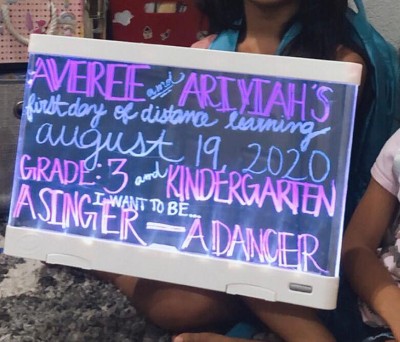 AVEREE and ARIYIAH'S
first day of distance learning
august 19, 2020
GRADE: 3 and KINDERGARTEN
I WANT TO BE...
A SINGER — A DANCER